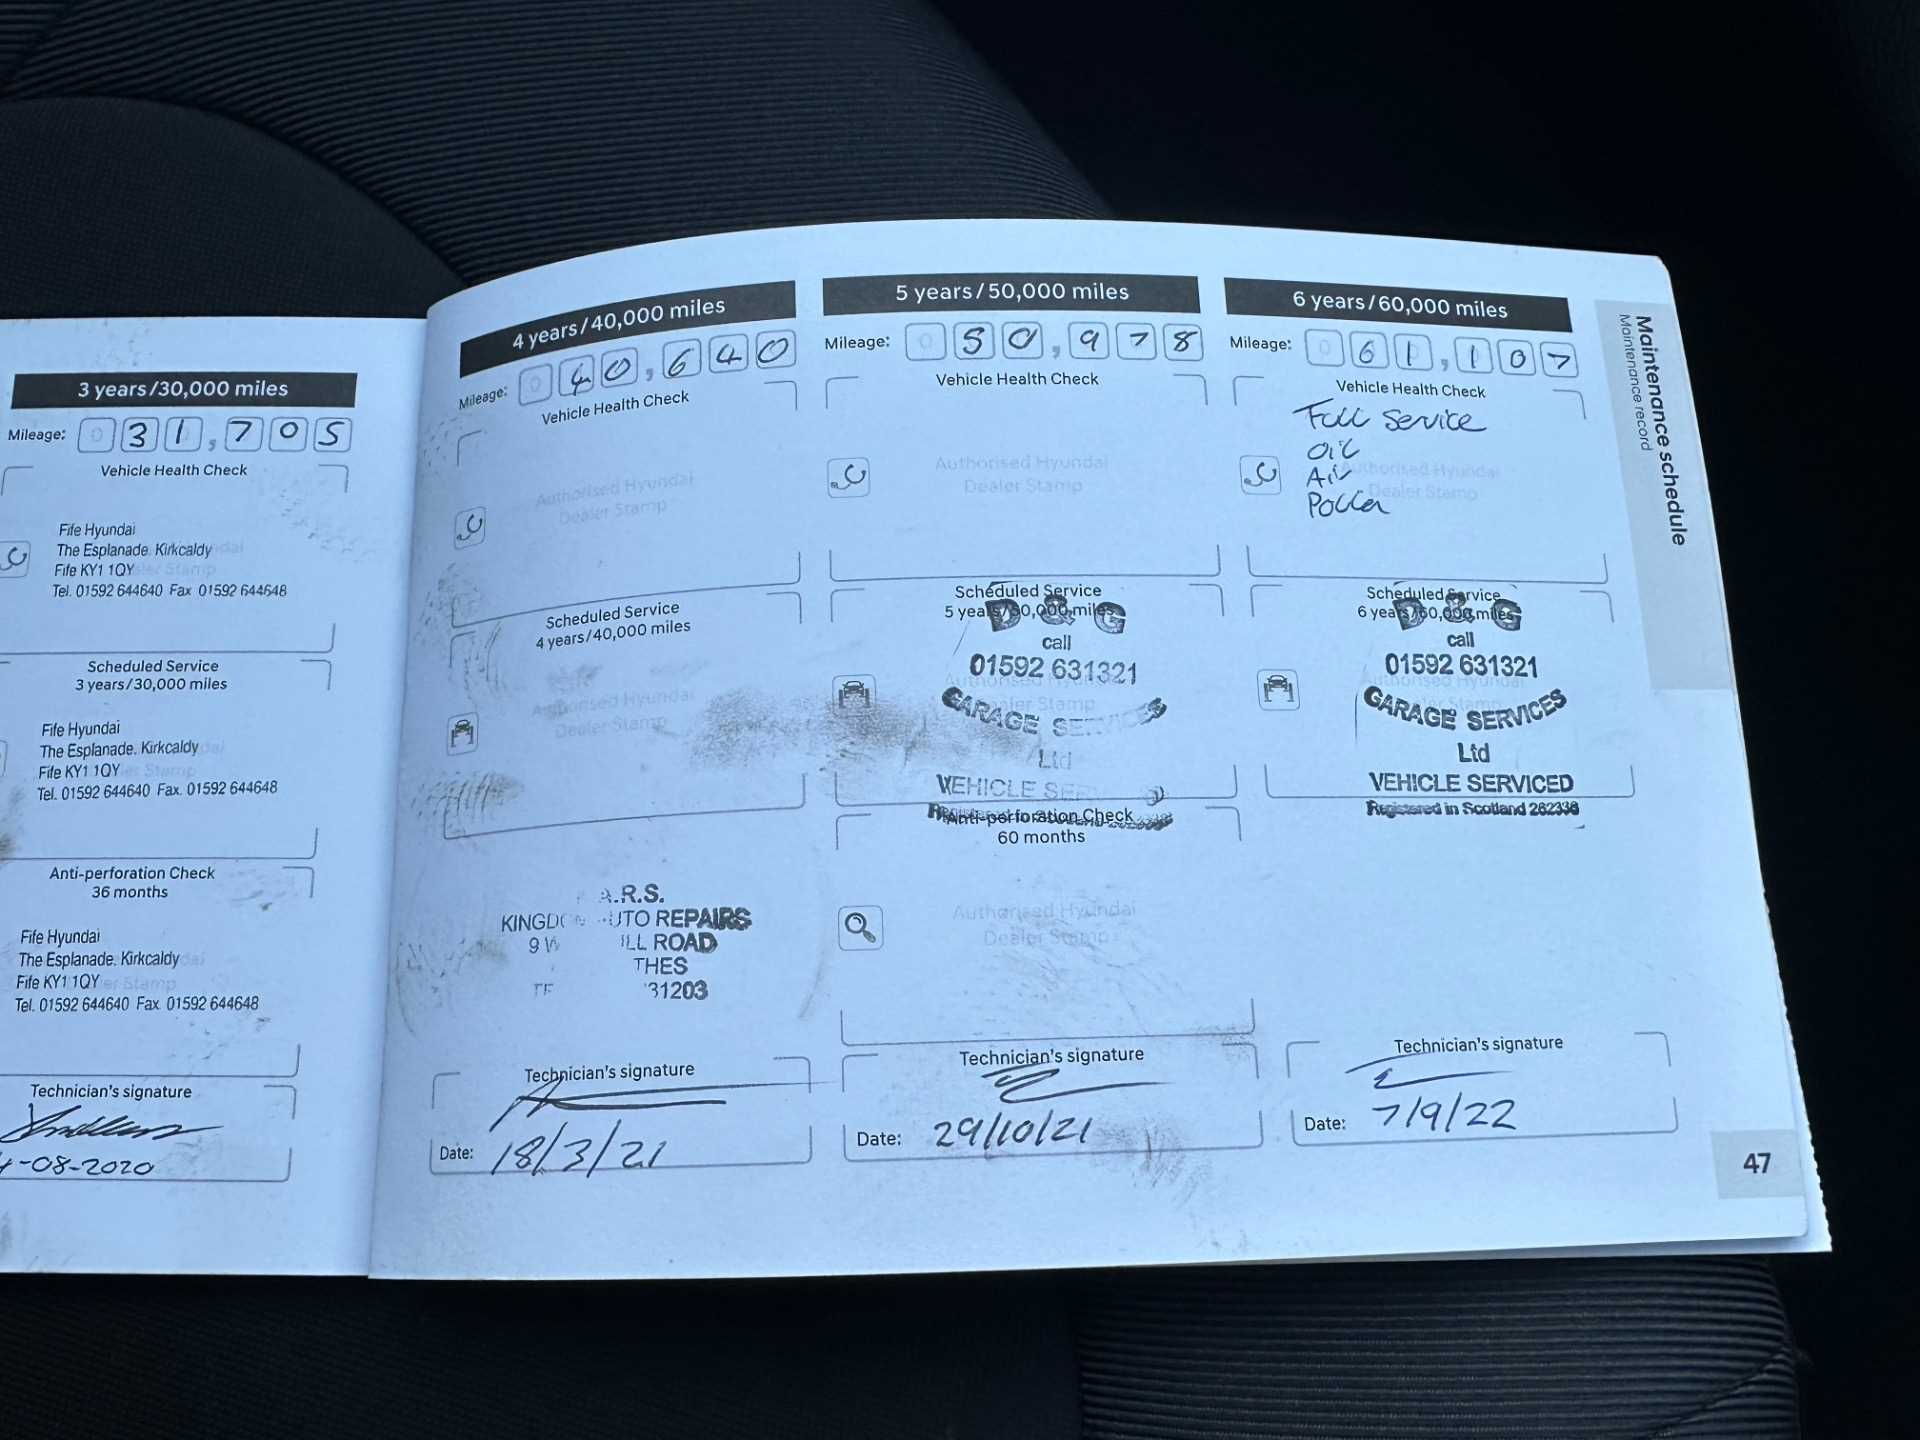 3 years/30,000 miles
Mileage: 031,705
Vehicle Health Check
Fife Hyundai
The Esplanade. Kirkcaldy
Fife KY1 1QY
Tel. 01592 644640 Fax 01592 644648
Scheduled Service
3 years/30,000 miles
Fife Hyundai
The Esplanade. Kirkcaldy
Fife KY1 1QY
Tel. 01592 644640 Fax. 01592 644648
Anti-perforation Check
36 months
Fife Hyundai
The Esplanade. Kirkcaldy
Fife KY1 1QY
Tel. 01592 644640 Fax 01592 644648
Technician's signature
-08-2020
4 years/40,000 miles
Mileage: 040,640
Vehicle Health Check
Authorised Hyundai
Dealer Stamp
Scheduled Service
4 years/40,000 miles
Authorised Hyundai
Dealer Stamp
A.R.S.
REPAIRS
ROAD
31203
Technician's signature
Date: 18/3/21
5 years/50,000 miles
Mileage: 050,978
Vehicle Health Check
Authorised Hyundai
Dealer Stamp
Scheduled Service
5 years/50,000 miles
D & G
call
01592 631321
Authorised Hyundai
Dealer Stamp
GARAGE SERVICES
Ltd
VEHICLE
Anti-perforation Check
60 months
Authorised Hyundai
Dealer Stamp
Technician's signature
Date: 29/10/21
6 years/60,000 miles
Mileage: 061,107
Vehicle Health Check
Full Service
Oil
Air
Authorised Hyundai
Dealer Stamp
Pollen
Scheduled Service
6 years/60,000 miles
D & G
call
01592 631321
Authorised Hyundai
GARAGE SERVICES
Ltd
VEHICLE SERVICED
Registered in Scotland 262336
Technician's signature
Date: 7/9/22
Maintenance schedule
Maintenance record
47